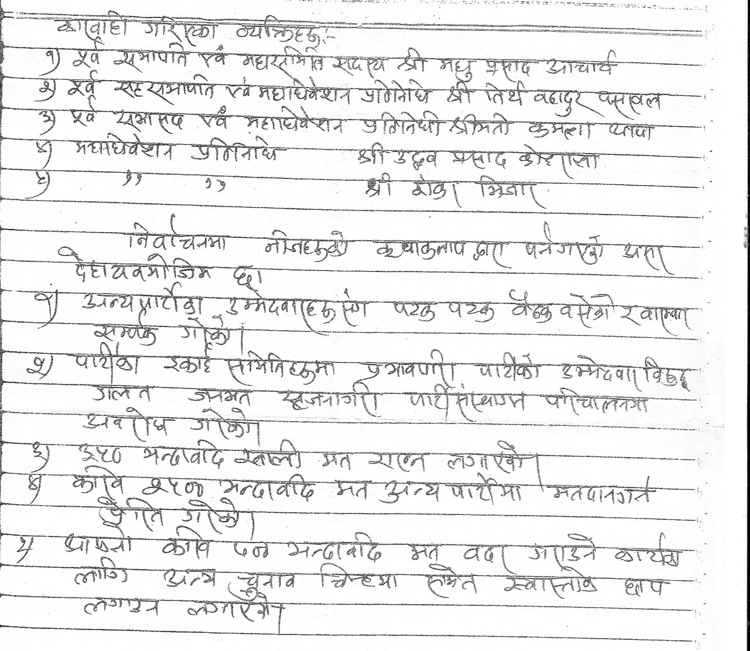 कारवाही गरिएका व्यक्तिहरु:-
१) पूर्व सभापति एवं महासमिति सदस्य श्री मधु प्रसाद आचार्य
२) पूर्व सहसभापति एवं महाधिवेशन प्रतिनिधि श्री तिर्थ बहादुर
३) पूर्व सभासद एवं महाधिवेशन प्रतिनिधी श्रीमती कमला थापा
४) महाधिवेशन प्रतिनिधि श्री उद्धव प्रसाद कोइराला
५) ,, ,, श्री
निर्वाचनमा नीजहरुको क्रियाकलाप द्वारा पर्नगएको असर
देहायबमोजिम छ।
१) अन्य पार्टीका उम्मेदवारहरुसंग पटक पटक बैठक बसेको र बारम्बार
सम्पर्क गरेको।
२) पार्टीका इकाई समितिहरुमा पार्टीको उम्मेदवार विरुद्ध
गलत जनमत सृजनागरी पार्टी परिचालनमा
अवरोध गरेको।
३) ३५० भन्दाबढि खाली मत लगाएको।
४) करिब २५०० भन्दाबढि मत अन्य पार्टीमा मतदानगर्न
प्रेरित गरेको।
५) आफ्नो करिब भन्दाबढि मत बदर गराउने कार्यका
लागि अन्य चुनाव चिन्हमा समेत स्वास्तीक छाप
लगाउन लगाएको।